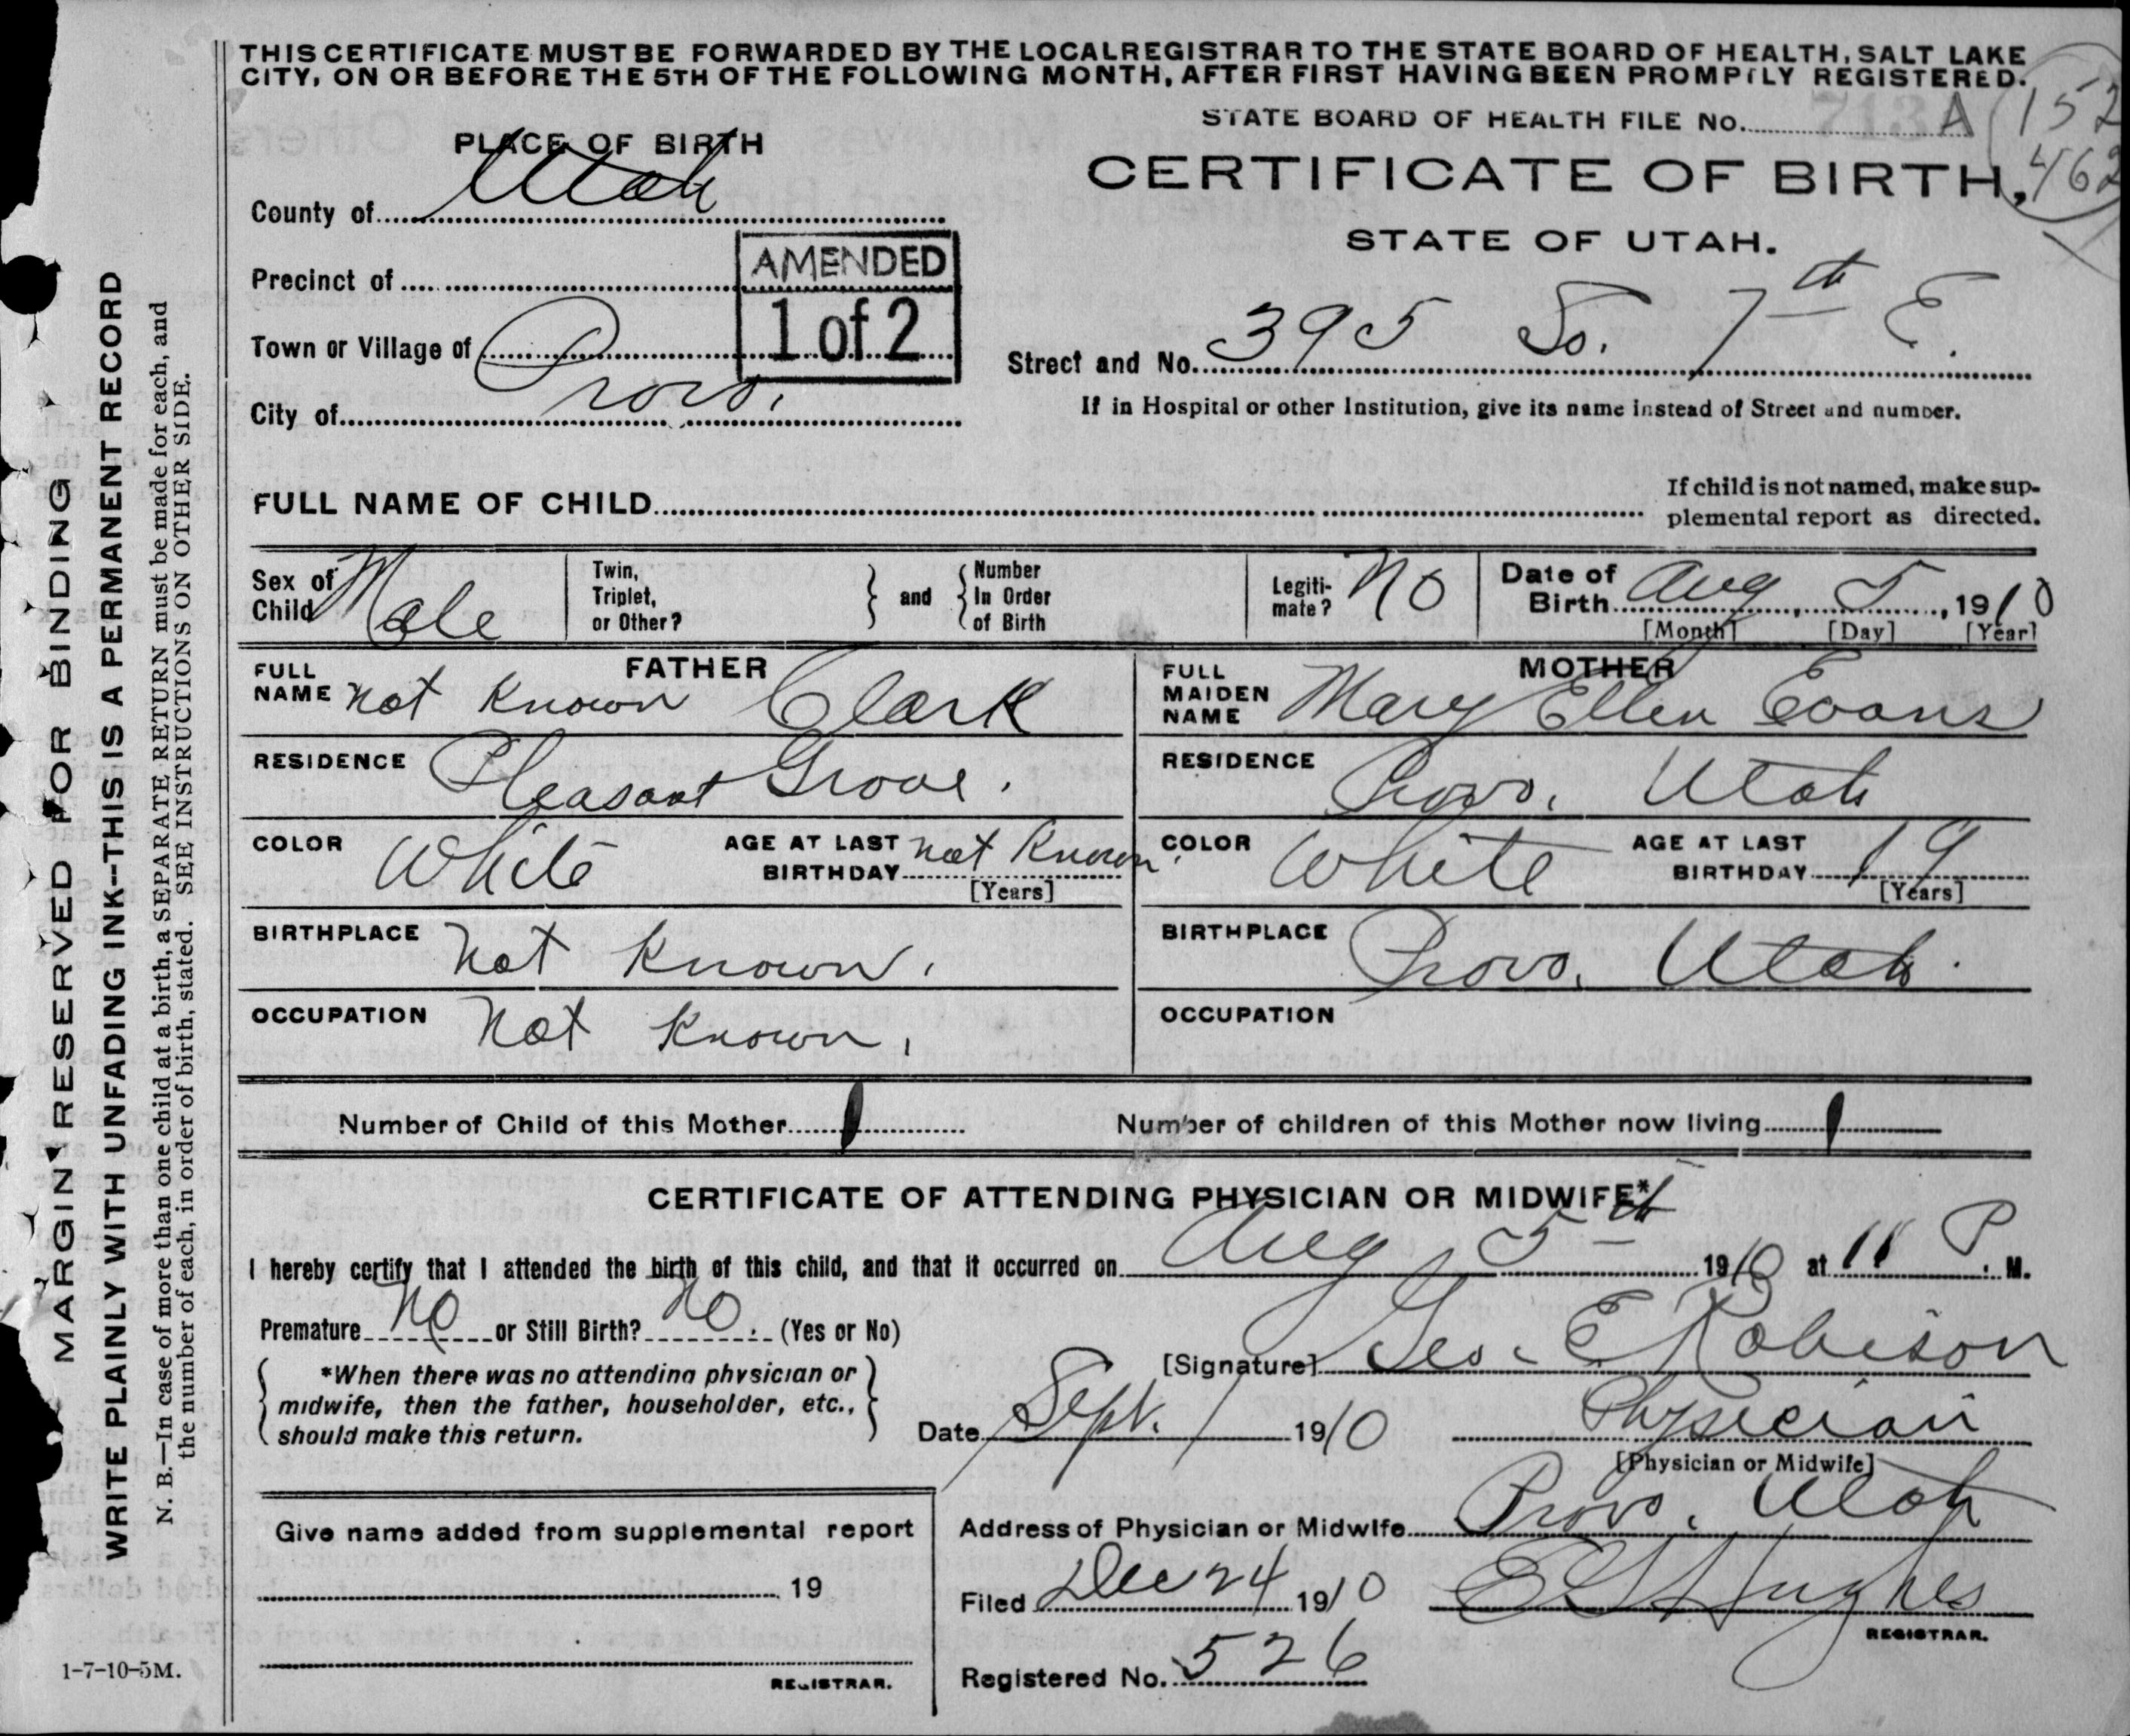 THIS CERTIFICATE MUST BE FORWARDED BY THE LOCAL REGISTRAR TO THE STATE BOARD OF HEALTH, SALT LAKE
CITY, ON OR BEFORE THE 5TH OF THE FOLLOWING MONTH, AFTER FIRST HAVING BEEN PROMPTLY REGISTERED.
STATE BOARD OF HEALTH FILE No. 713 A
152
462
PLACE OF BIRTH
CERTIFICATE OF BIRTH,
County of Utah
STATE OF UTAH.
AMENDED
1 of 2
Precinct of
Town or Village of
Street and No. 395 So. 7th E.
City of Provo.
If in Hospital or other Institution, give its name instead of Street and number.
FULL NAME OF CHILD
If child is not named, make sup-
plemental report as directed.
Sex of Child Male
Twin, Triplet, or Other?
and
Number In Order of Birth
Legiti-mate? No
Date of Birth Aug 5, 1910
[Month] [Day] [Year]
FATHER
FULL NAME not Known Clark
RESIDENCE Pleasant Grove.
COLOR White AGE AT LAST BIRTHDAY not Known.
[Years]
BIRTHPLACE Not Known.
OCCUPATION Not Known.
MOTHER
FULL MAIDEN NAME Mary Ellen Evans
RESIDENCE Provo, Utah
COLOR White AGE AT LAST BIRTHDAY 19
[Years]
BIRTHPLACE Provo, Utah.
OCCUPATION
Number of Child of this Mother 1 Number of children of this Mother now living 1
CERTIFICATE OF ATTENDING PHYSICIAN OR MIDWIFE*
I hereby certify that I attended the birth of this child, and that it occurred on Aug 5th 1910 at 11 P. M.
Premature No or Still Birth? No. (Yes or No)
*When there was no attending physician or
midwife, then the father, householder, etc.,
should make this return.
[Signature] Geo. E Robison
Date Sept. 1 1910 Physician
[Physician or Midwife]
Give name added from supplemental report
19
REGISTRAR.
Address of Physician or Midwife Provo, Utah
Filed Dec 24 1910 Hughes
REGISTRAR.
Registered No. 526
MARGIN RESERVED FOR BINDING
WRITE PLAINLY WITH UNFADING INK--THIS IS A PERMANENT RECORD
N. B.—In case of more than one child at a birth, a SEPARATE RETURN must be made for each, and
the number of each, in order of birth, stated. SEE INSTRUCTIONS ON OTHER SIDE.
1-7-10-5M.